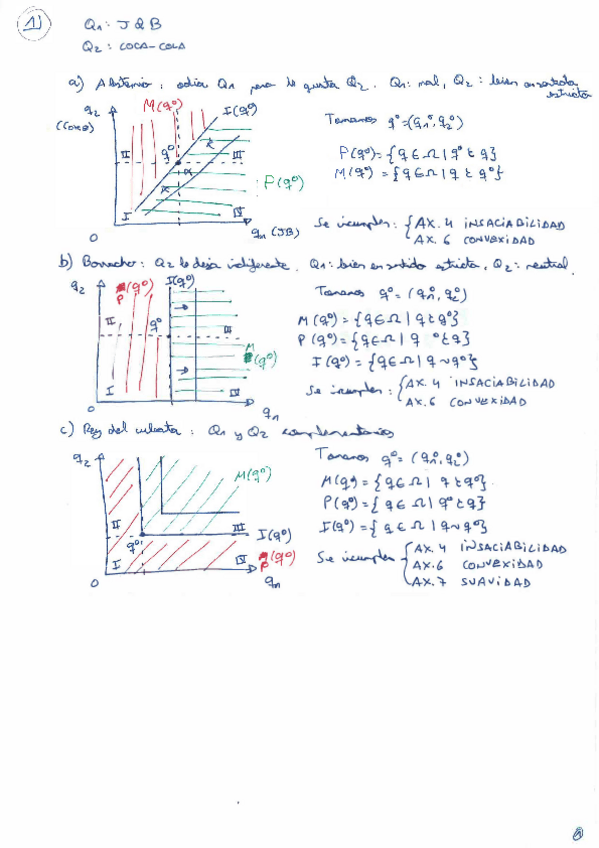 1)
Q1: J&B
Q2: COCA-COLA
a) Abstemio: odia Q1 pero le gusta Q2. Q1: mal, Q2: bien en sentido estricto
q2
(Coca)
M(q⁰)
I(q⁰)
II
q⁰
III
P(q⁰)
I
IV
0
q1 (JB)
Tomamos q⁰=(q1⁰, q2⁰)
P(q⁰)={q∈Ω | q⁰ ≿ q}
M(q⁰)={q∈Ω | q ≿ q⁰}
Se incumplen: { AX. 4 INSACIABILIDAD
AX. 6 CONVEXIDAD
b) Borracho: Q2 le deja indiferente. Q1: bien en sentido estricto, Q2: neutral.
q2
P(q⁰)
I(q⁰)
II
q⁰
III
M(q⁰)
I
IV
0
q1
Tomamos q⁰=(q1⁰, q2⁰)
M(q⁰)={q∈Ω | q ≿ q⁰}
P(q⁰)={q∈Ω | q⁰ ≿ q}
I(q⁰)={q∈Ω | q ∼ q⁰}
Se incumplen: { AX. 4 INSACIABILIDAD
AX. 6 CONVEXIDAD
c) Rey del cubata: Q1 y Q2 complementarios
q2
M(q⁰)
II
III
I(q⁰)
q⁰
I
IV
P(q⁰)
0
q1
Tomamos q⁰=(q1⁰, q2⁰)
M(q⁰)={q∈Ω | q ≿ q⁰}
P(q⁰)={q∈Ω | q⁰ ≿ q}
I(q⁰)={q∈Ω | q ∼ q⁰}
Se incumplen { AX. 4 INSACIABILIDAD
AX. 6 CONVEXIDAD
AX. 7 SUAVIDAD